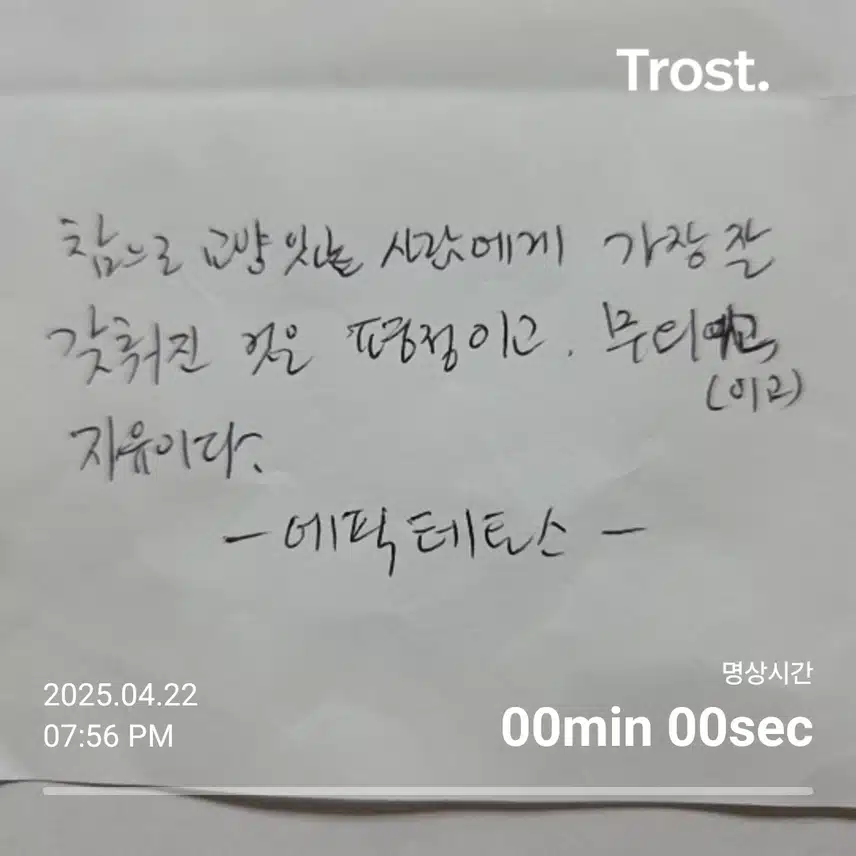 Trost.
참으로 교양 있는 사람에게 가장 잘
갖춰진 것은 평정이고, 무티
(이고)
자유이다.
- 에픽테토스 -
명상시간
2025.04.22
07:56 PM
00min 00sec